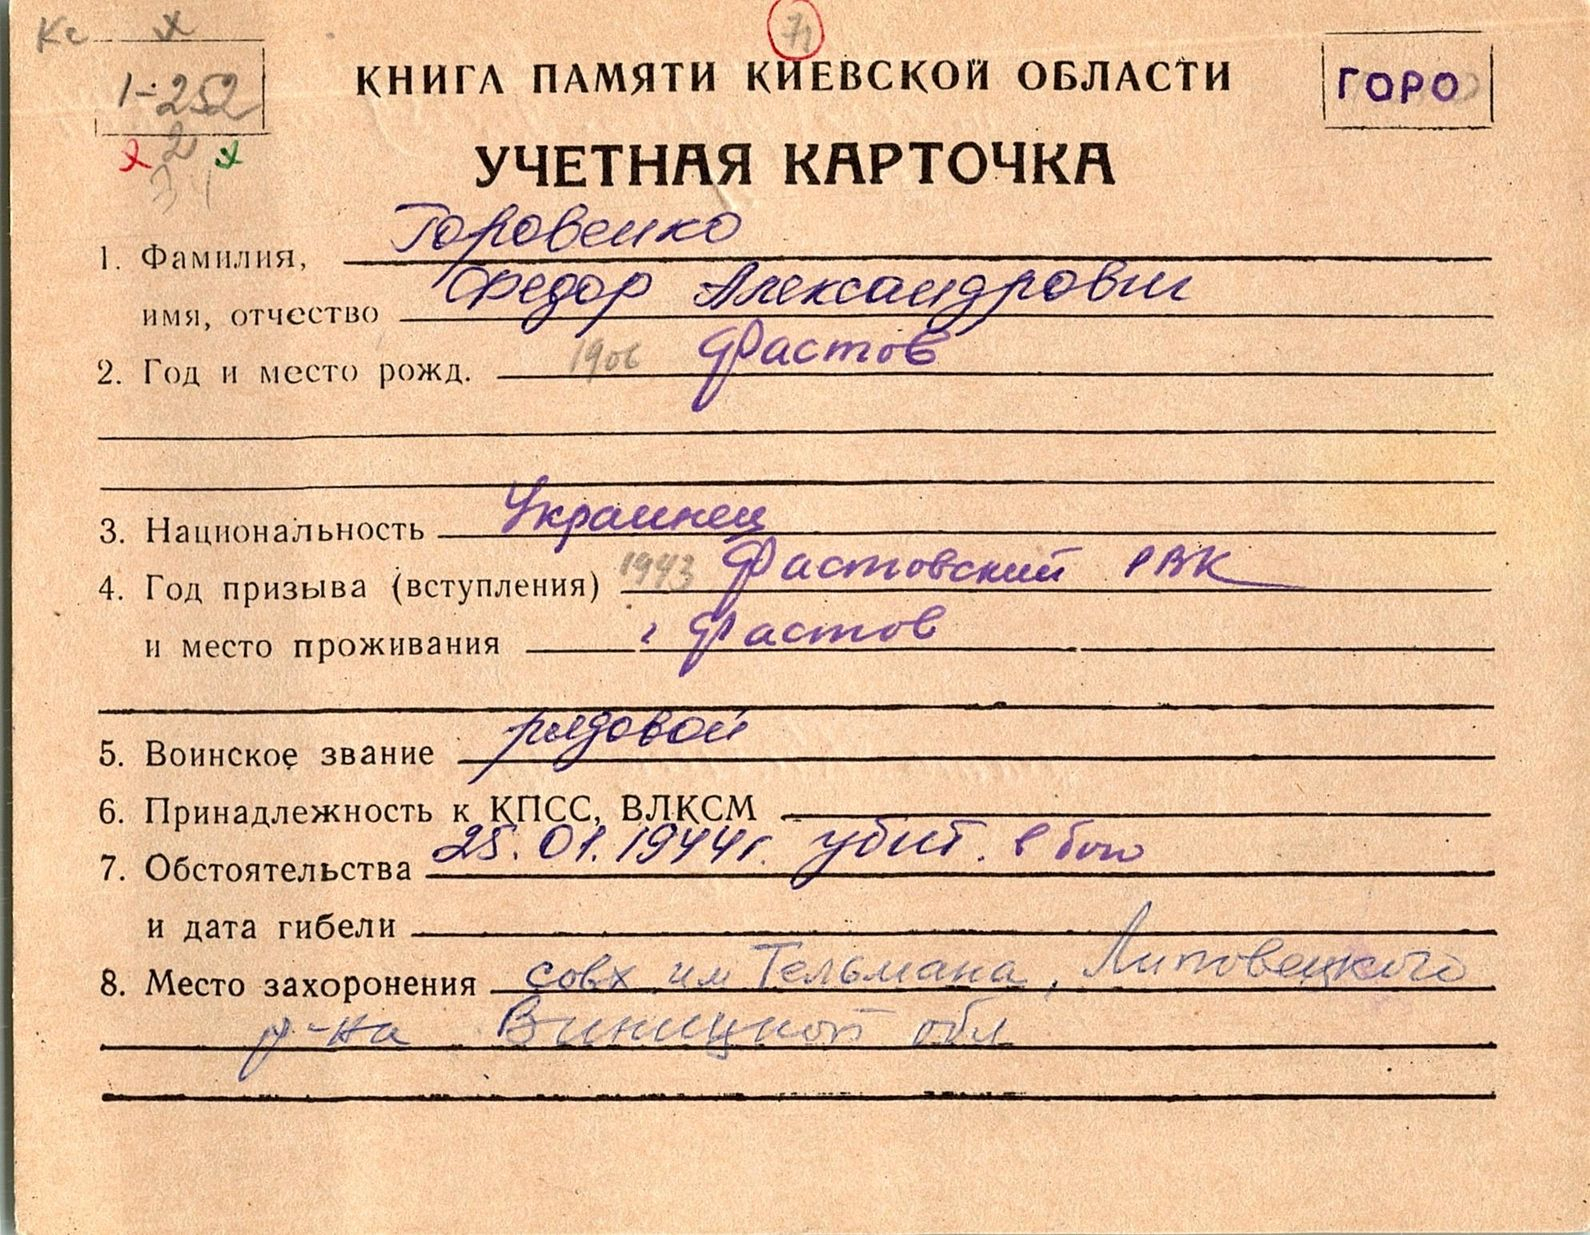 Кс х
71
1-252
КНИГА ПАМЯТИ КИЕВСКОЙ ОБЛАСТИ
ГОРО
х 2 х
УЧЕТНАЯ КАРТОЧКА
1. Фамилия, Горовенко
имя, отчество Федор Александрович
2. Год и место рожд. 1906 Фастов
3. Национальность Украинец
4. Год призыва (вступления) 1943 Фастовский РВК
и место проживания г Фастов
5. Воинское звание рядовой
6. Принадлежность к КПСС, ВЛКСМ
7. Обстоятельства 25.01.1944г. убит. в бою
и дата гибели
8. Место захоронения совх им Тельмана, Липовецкого
р-на Виницкой обл